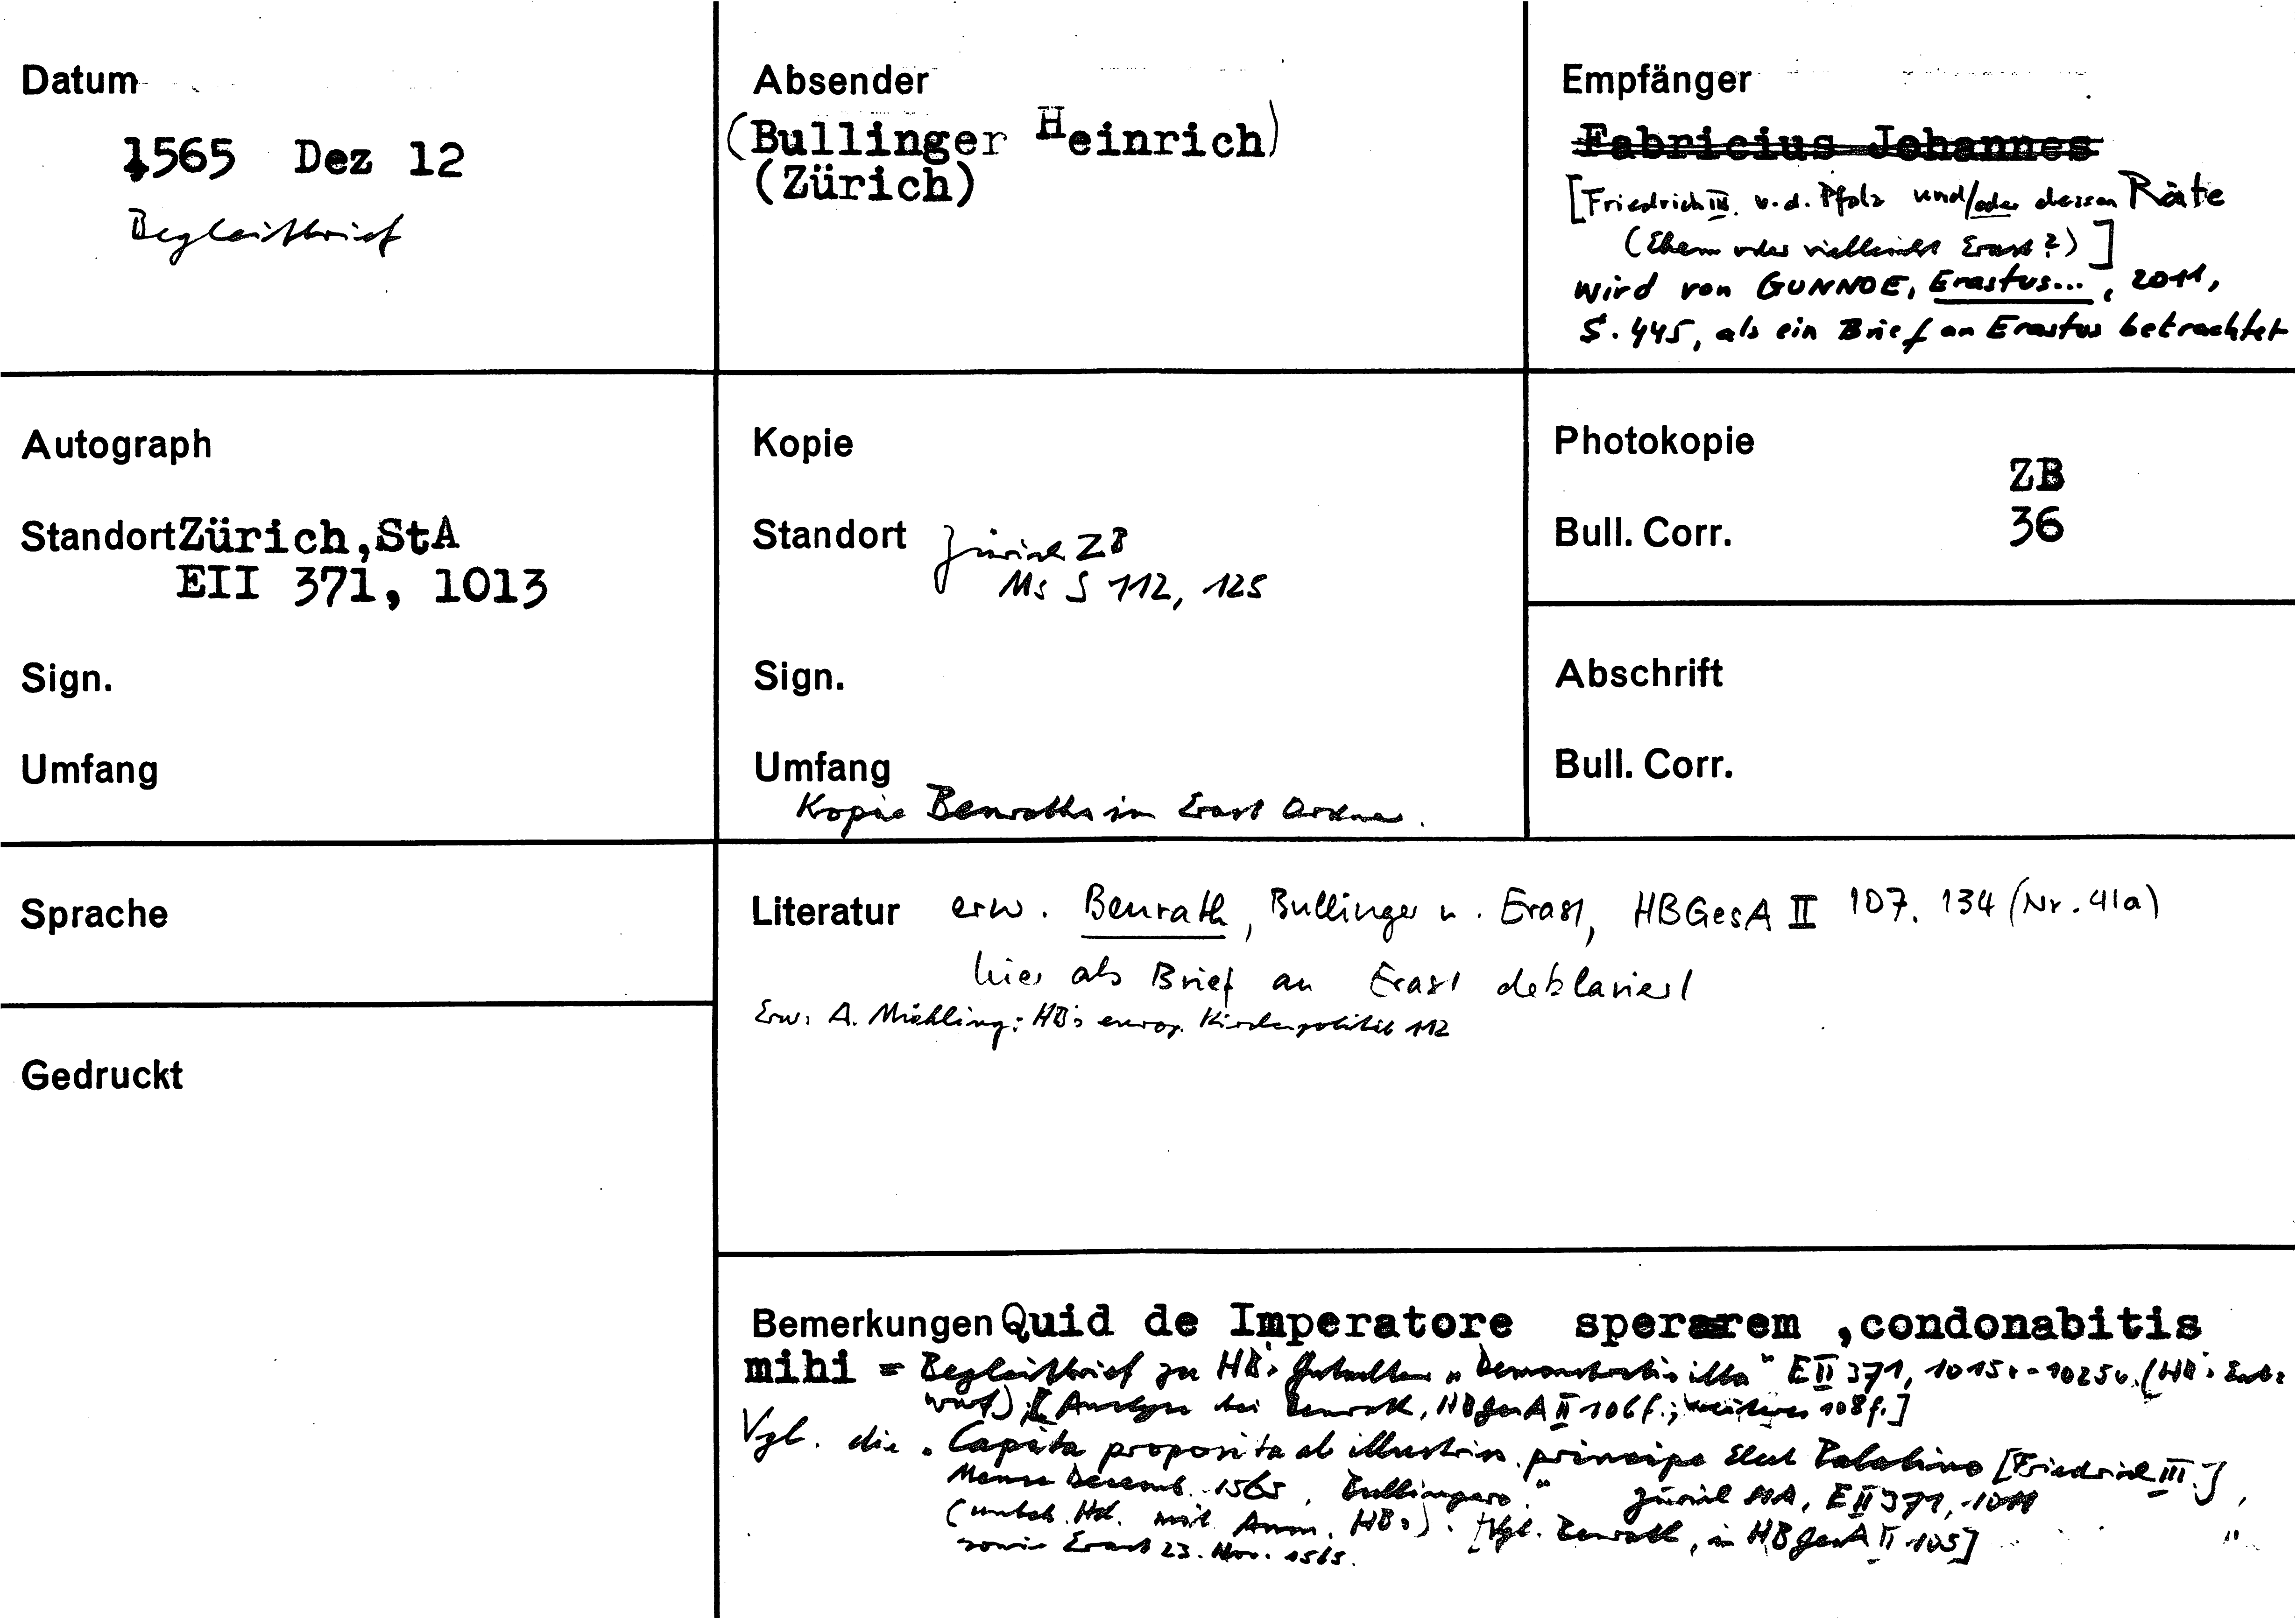 Datum
1565 Dez 12
Begleitbrief
Absender
(Bullinger Heinrich)
(Zürich)
Empfänger
Fabricius Johannes
[Friedrich III. v. d. Pfalz und/oder dessen Räte
(Ehem oder vielleicht Erast?)]
wird von GUNNOE, Erastus..., 2011,
S. 445, als ein Brief an Erastus betrachtet
Autograph
Standort Zürich, StA
EII 371, 1013
Sign.
Umfang
Kopie
Standort Zürich ZB
Ms S 112, 125
Sign.
Umfang
Kopie Benraths im Erast Ordner.
Photokopie
ZB
Bull. Corr. 36
Abschrift
Bull. Corr.
Sprache
Gedruckt
Literatur erw. Benrath, Bullinger u. Erast, HBGesA II 107. 134 (Nr. 41a)
hier als Brief an Erast deklariert
Erw: A. Mühling: HB's europ. Kirchenpolitik 112
Bemerkungen Quid de Imperatore sperarem, condonabitis
mihi = Begleitbrief zu HBs Gutachten "Demonstratio illa" E II 371, 1015r-1025v. (HBs Ent=
wurf) [Analyse bei Benrath, HBGesA II 106f.; weiteres 108f.]
Vgl. die "Capita proposita ab illustriss. principe Elect Palatino [Friedrich III.],
Mense Decemb. 1565, Bullingero." Zürich StA, E II 371, 1011
(unbek. Hd. mit Anm. HBs). [Vgl. Benrath, in HBGesA II 105]
sowie Erast 23. Nov. 1565.